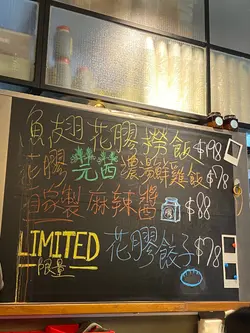 魚翅花膠撈飯$198
花膠芫茜濃湯鮮雞飯$78
自家製麻辣醬$88
LIMITED 花膠餃子$78
限量